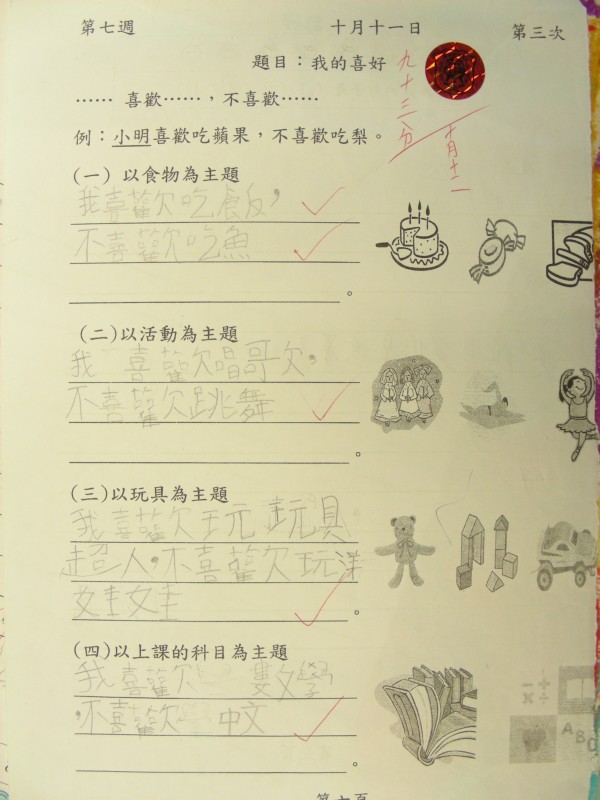 第七週 十月十一日 第三次
題目：我的喜好
九十三分
十月十二
……喜歡……，不喜歡……
例：小明喜歡吃蘋果，不喜歡吃梨。
(一) 以食物為主題
我喜歡吃飯，
不喜歡吃魚
。
(二)以活動為主題
我 喜歡唱歌，
不喜歡跳舞
。
(三)以玩具為主題
我喜歡玩玩具
超人，不喜歡玩洋
娃娃
。
(四)以上課的科目為主題
我喜歡 數學
，不喜歡 中文
。
ABC
第七頁